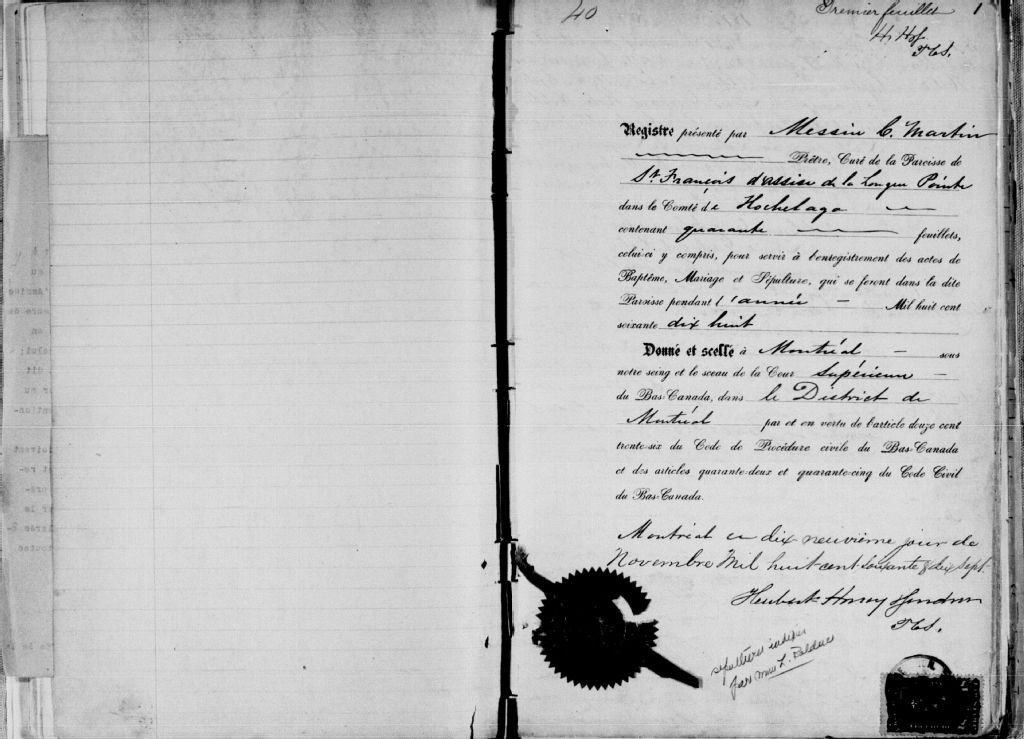 40
Premier feuillet 1
H. H.
Registre présenté par Messire C. Martin
Prêtre, Curé de la Paroisse de
St. François d'assise de la Longue Pointe
dans le Comté de Hochelaga
contenant quarante feuillets,
celui-ci y compris, pour servir à l'enregistrement des actes de
Baptême, Mariage et Sépulture, qui se feront dans la dite
Paroisse pendant l'année Mil huit cent
soixante dix huit
Donné et scellé à Montréal sous
notre seing et le sceau de la Cour Supérieure
du Bas-Canada, dans le District de
Montréal par et en vertu de l'article douze cent
trente-six du Code de Procédure civile du Bas-Canada
et des articles quarante-deux et quarante-cinq du Code Civil
du Bas-Canada.
Montréal ce dix neuvième jour de
Novembre Mil huit cent soixante & dix sept.
Hubert Honey
sépultures
par Mme L.